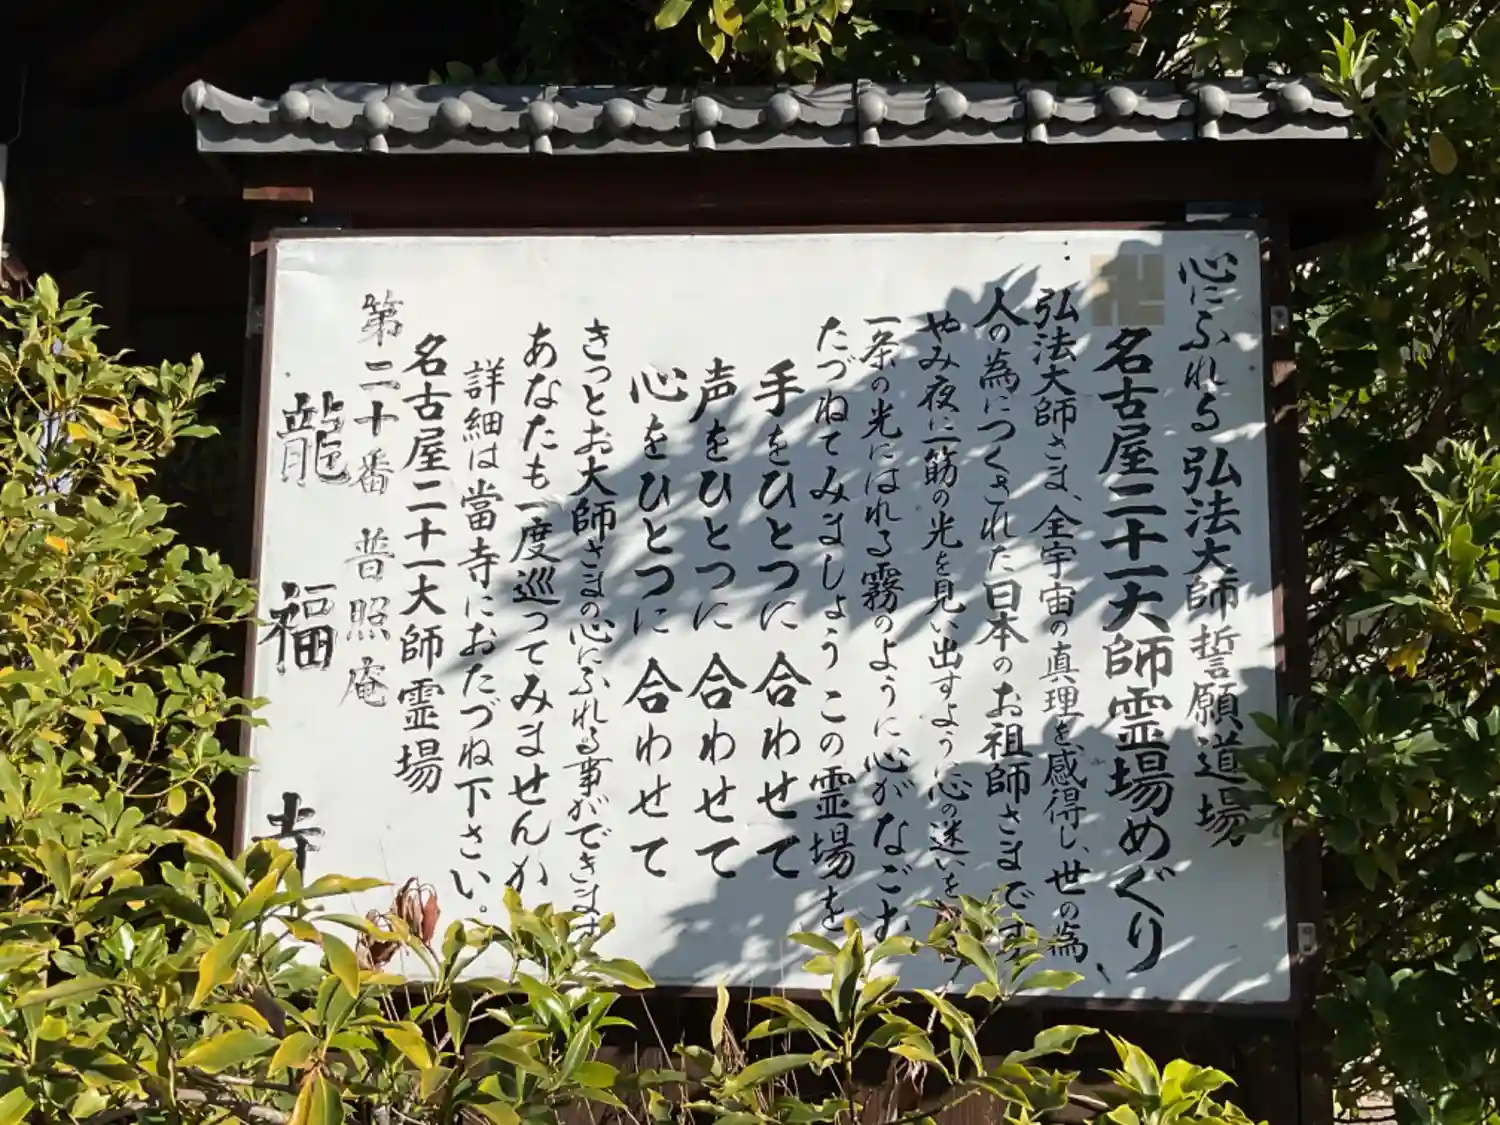 心にふれる 弘法大師誓願道場
名古屋二十一大師霊場めぐり
弘法大師さま、全宇宙の真理を、感得し、世の為、
人の為につくされた日本のお祖師さまです
やみ夜に一筋の光を見い出すよう、心の迷いを
一条の光にはれる霧のように心がなごむ
たづねてみましょうこの霊場を
手をひとつに合わせて
声をひとつに合わせて
心をひとつに合わせて
きっとお大師さまの心にふれる事ができます
あなたも一度巡ってみませんか
詳細は當寺におたづね下さい。
名古屋二十一大師霊場
第二十番 普照庵
龍福寺